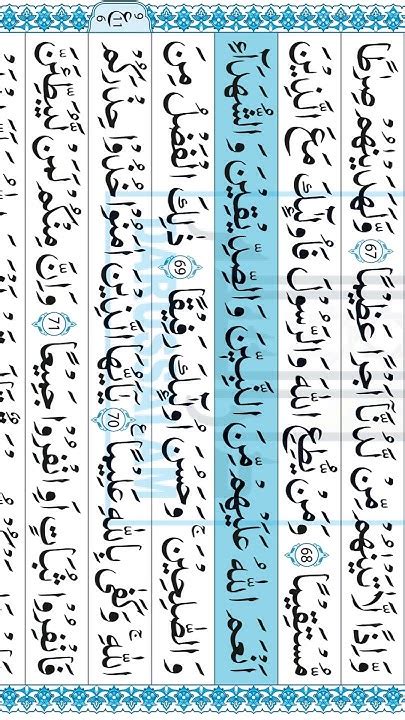 وَّاِذًا لَّاٰتَيْنٰهُمْ مِّنْ لَّدُنَّاۤ اَجْرًا عَظِيْمًا 67 وَّلَهَدَيْنٰهُمْ صِرَاطًا
مُّسْتَقِيْمًا 68 وَمَنْ يُّطِعِ اللّٰهَ وَالرَّسُوْلَ فَاُولٰٓئِكَ مَعَ الَّذِيْنَ
اَنْعَمَ اللّٰهُ عَلَيْهِمْ مِّنَ النَّبِيّٖنَ وَالصِّدِّيْقِيْنَ وَالشُّهَدَآءِ
وَالصّٰلِحِيْنَ ۚ وَحَسُنَ اُولٰٓئِكَ رَفِيْقًا 69 ذٰلِكَ الْفَضْلُ مِنَ
اللّٰهِ ؕ وَكَفٰى بِاللّٰهِ عَلِيْمًا 70 ع يٰۤاَيُّهَا الَّذِيْنَ اٰمَنُوْا خُذُوْا حِذْرَكُمْ
9 ع 11 6
فَانْفِرُوْا ثُبَاتٍ اَوِ انْفِرُوْا جَمِيْعًا 71 وَاِنَّ مِنْكُمْ لَمَنْ لَّيُبَطِّئَنَّ
DARUSSALAM